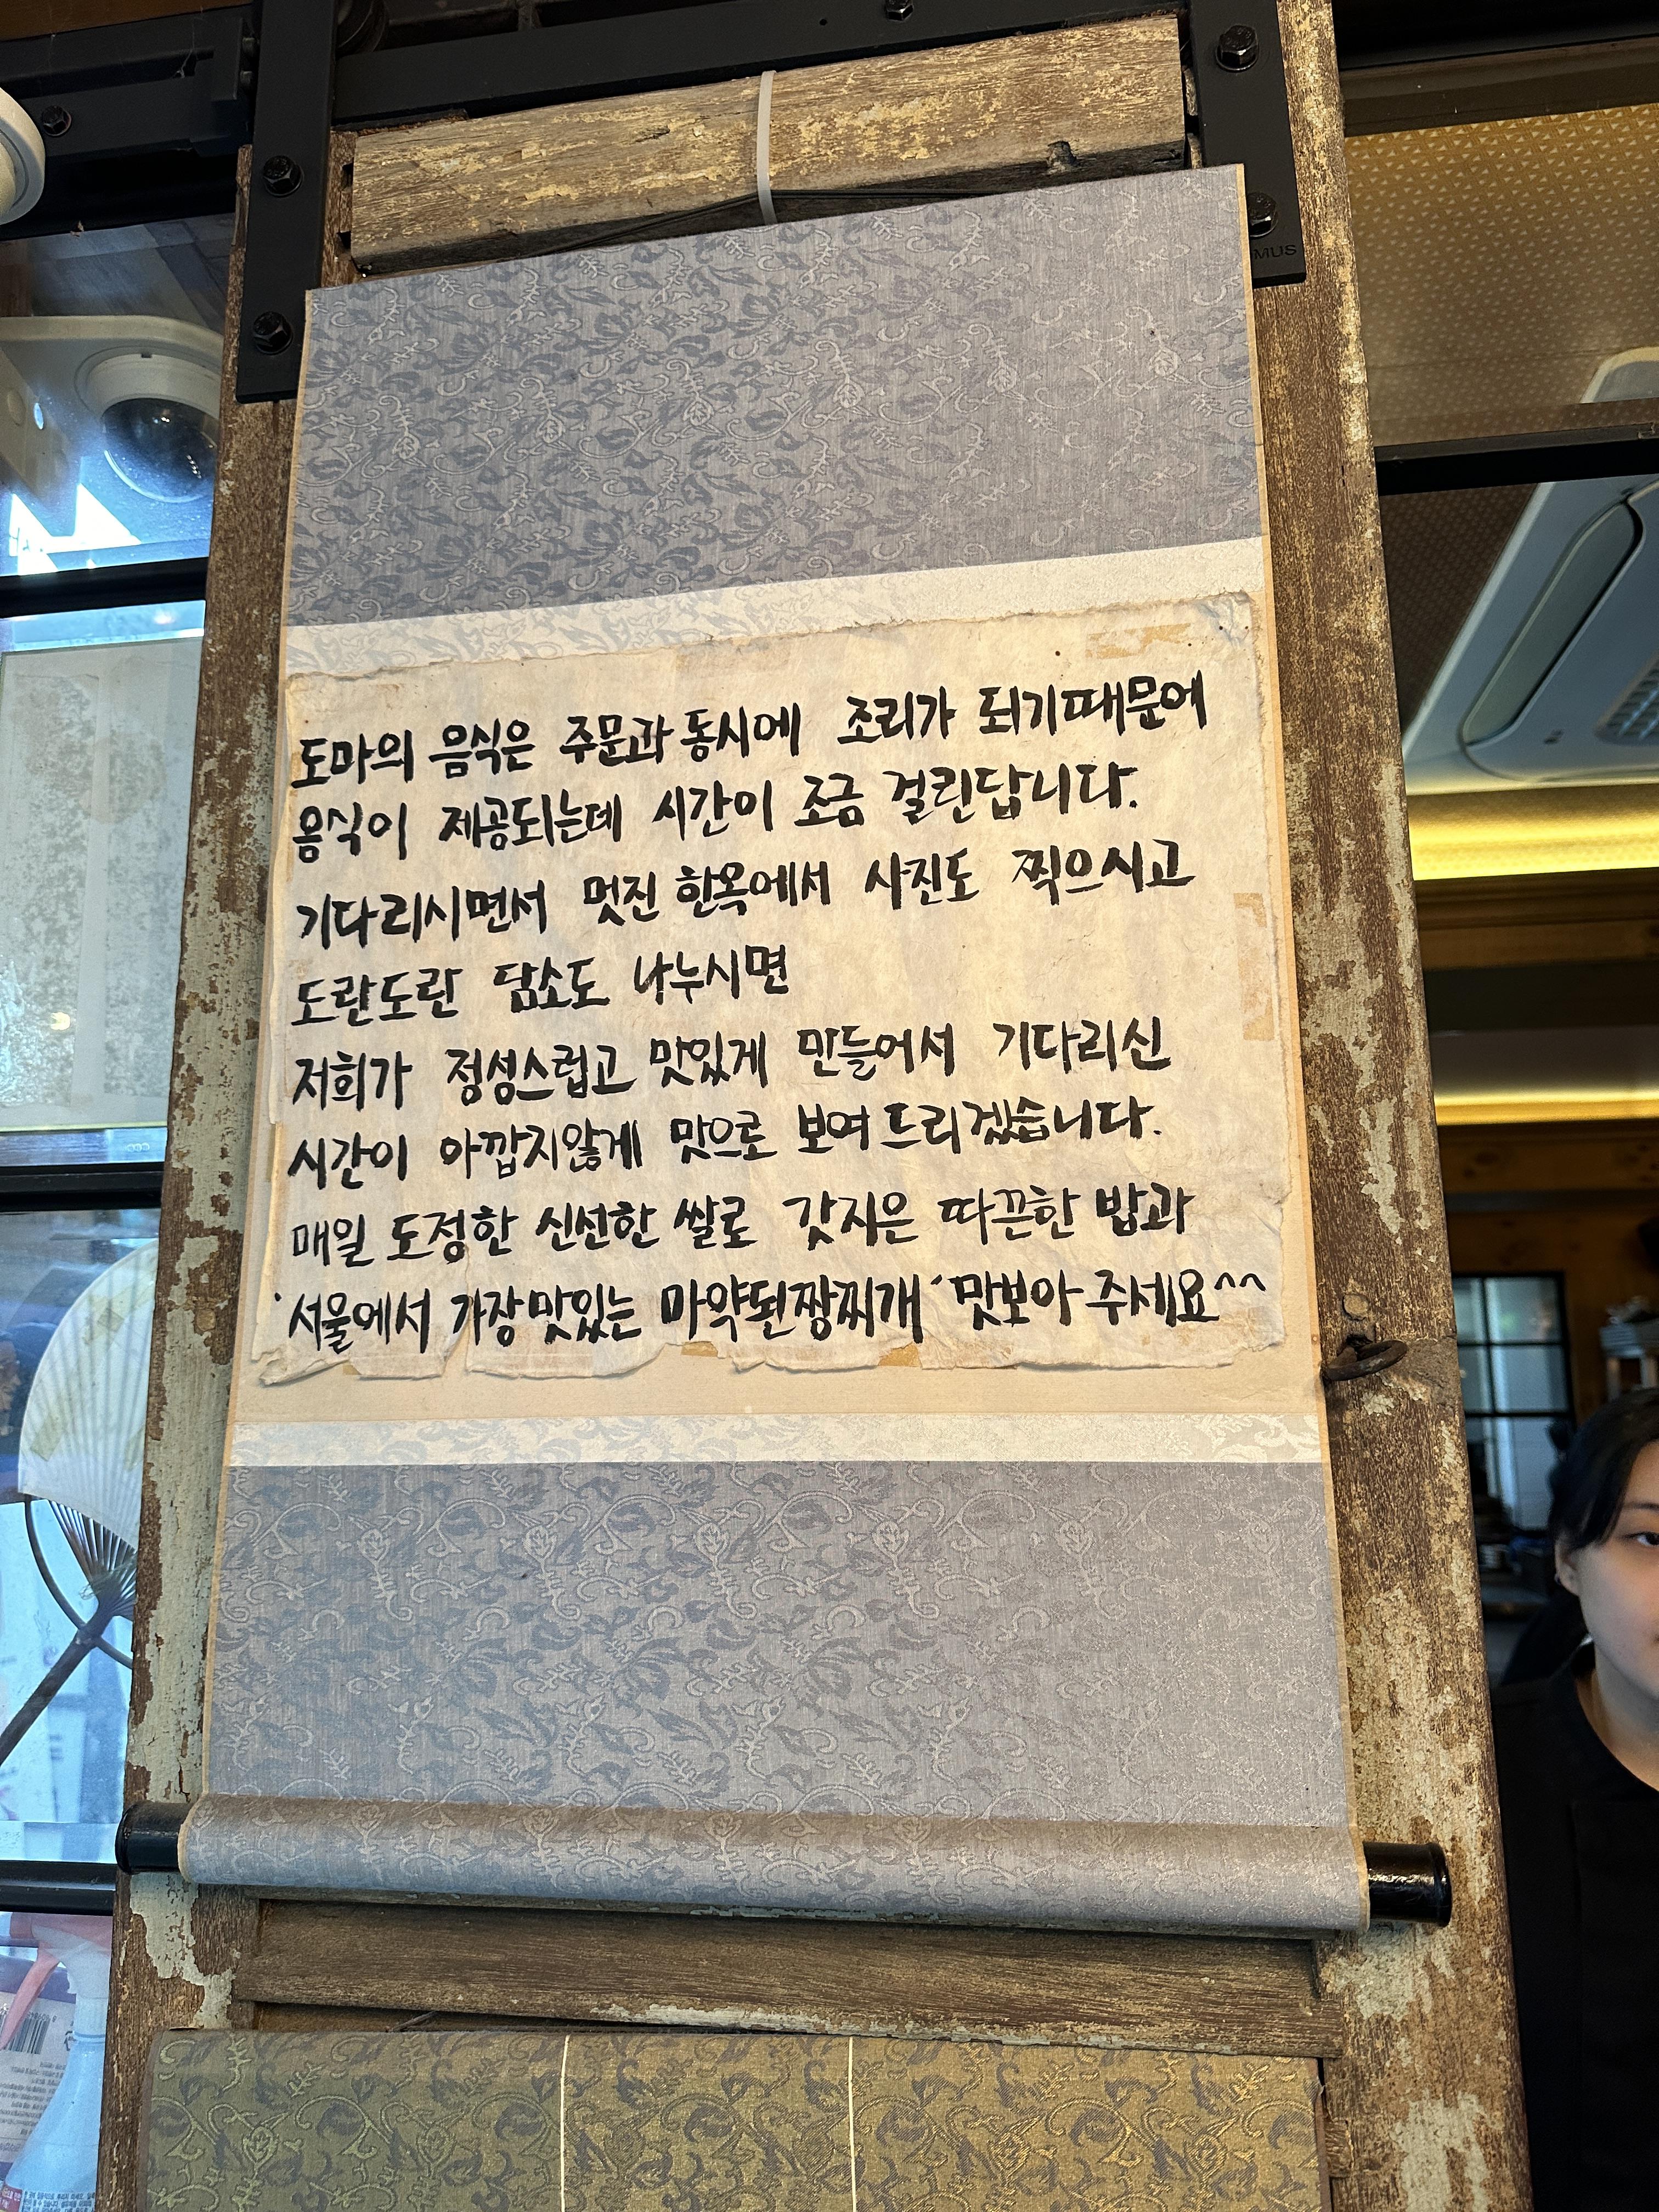 도마의 음식은 주문과 동시에 조리가 되기때문에
음식이 제공되는데 시간이 조금 걸린답니다.
기다리시면서 멋진 한옥에서 사진도 찍으시고
도란도란 담소도 나누시면
저희가 정성스럽고 맛있게 만들어서 기다리신
시간이 아깝지않게 맛으로 보여드리겠습니다.
매일 도정한 신선한 쌀로 갓지은 따끈한 밥과
'서울에서 가장맛있는 마약된장찌개' 맛보아 주세요^^
MUS